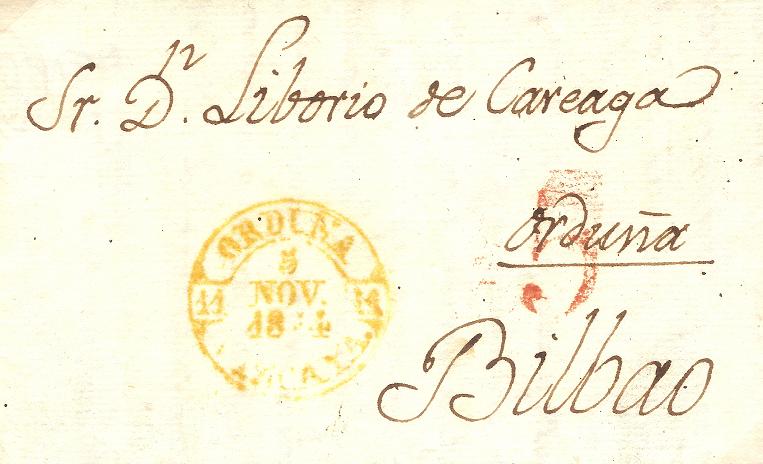 Sr. Dn. Liborio de Careaga
Orduña
Bilbao
ORDUÑA
5
NOV.
11 11